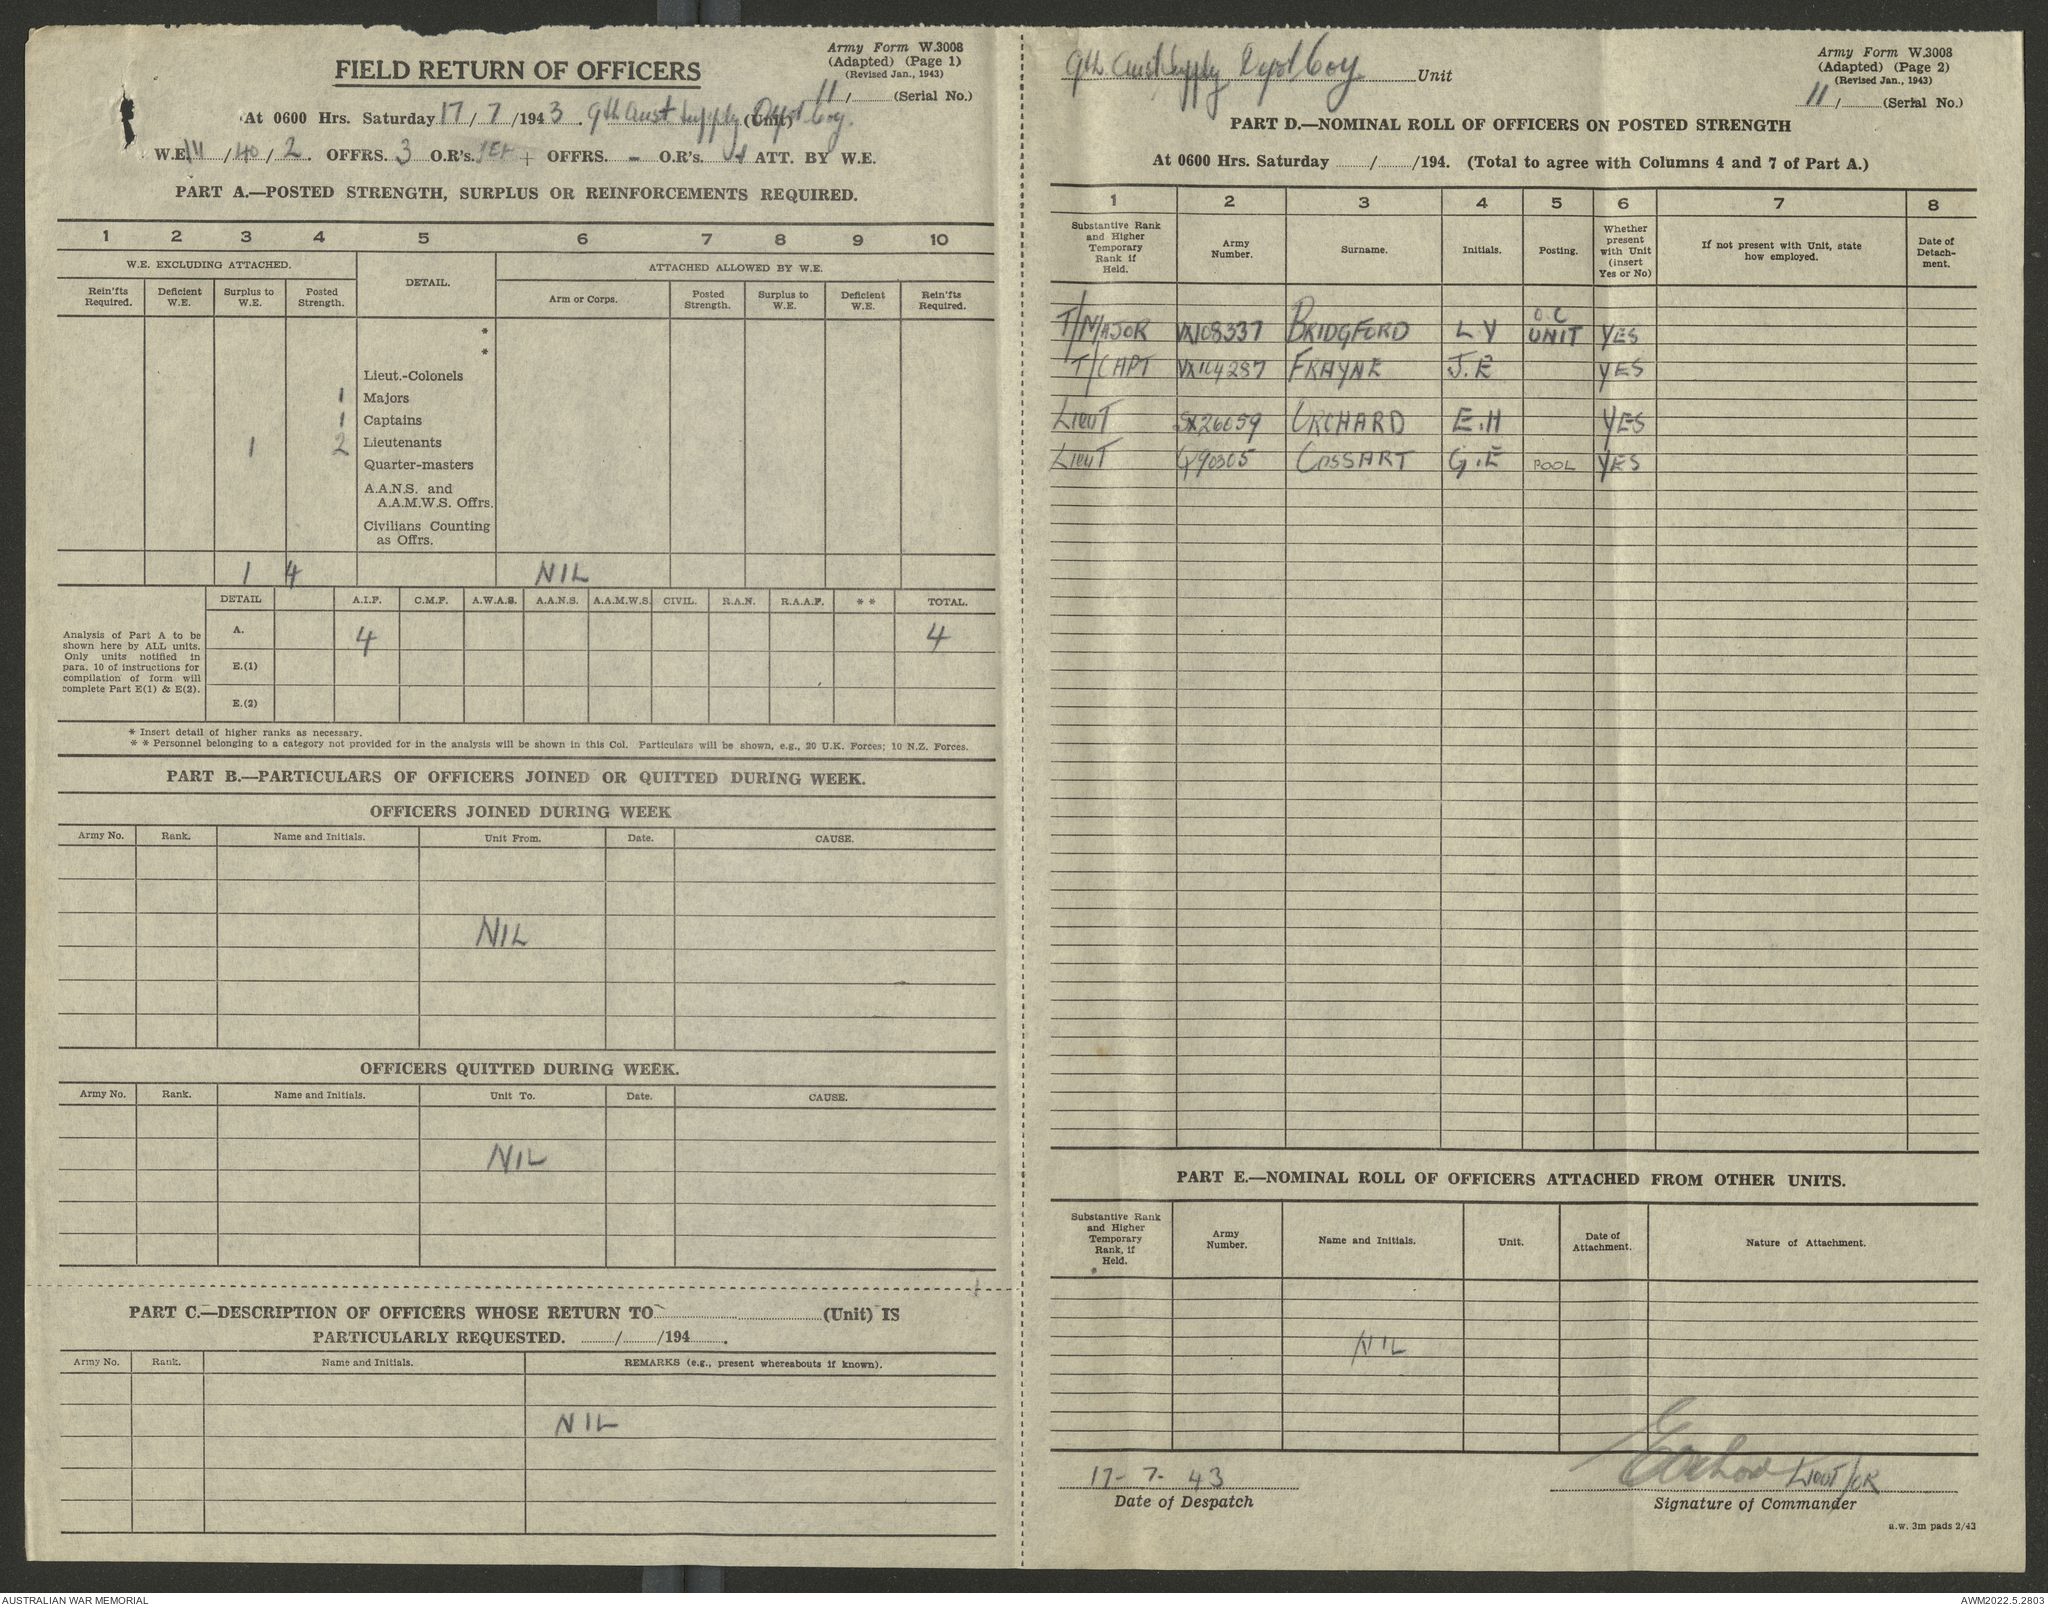 Army Form W.3008
(Adapted) (Page 1)
(Revised Jan., 1943)
FIELD RETURN OF OFFICERS
11/ (Serial No.)
At 0600 Hrs. Saturday 17/7/1943. 9th Aust Supply Depot Coy. (Unit)
W.E. /40/2. OFFRS. 3 O.R's. + OFFRS. - O.R's. ATT. BY W.E.
PART A.—POSTED STRENGTH, SURPLUS OR REINFORCEMENTS REQUIRED.
1 2 3 4 5 6 7 8 9 10
W.E. EXCLUDING ATTACHED. DETAIL. ATTACHED ALLOWED BY W.E.
Rein'fts Required. Deficient W.E. Surplus to W.E. Posted Strength. Arm or Corps. Posted Strength. Surplus to W.E. Deficient W.E. Rein'fts Required.
*
*
Lieut.-Colonels
1 Majors
1 Captains
1 2 Lieutenants
Quarter-masters
A.A.N.S. and
A.A.M.W.S. Offrs.
Civilians Counting
as Offrs.
1 4 NIL
DETAIL A.I.F. C.M.F. A.W.A.S. A.A.N.S. A.A.M.W.S. CIVIL. R.A.N. R.A.A.F. * * TOTAL.
Analysis of Part A to be
shown here by ALL units.
Only units notified in
para. 10 of instructions for
compilation of form will
complete Part E(1) & E(2).
A. 4 4
E.(1)
E.(2)
* Insert detail of higher ranks as necessary.
* * Personnel belonging to a category not provided for in the analysis will be shown in this Col. Particulars will be shown, e.g., 20 U.K. Forces; 10 N.Z. Forces.
PART B.—PARTICULARS OF OFFICERS JOINED OR QUITTED DURING WEEK.
OFFICERS JOINED DURING WEEK
Army No. Rank. Name and Initials. Unit From. Date. CAUSE.
NIL
OFFICERS QUITTED DURING WEEK.
Army No. Rank. Name and Initials. Unit To. Date. CAUSE.
NIL
PART C.—DESCRIPTION OF OFFICERS WHOSE RETURN TO (Unit) IS
PARTICULARLY REQUESTED. / /194 .
Army No. Rank. Name and Initials. REMARKS (e.g., present whereabouts if known).
NIL
9th Aust Supply Depot Coy. Unit
Army Form W.3008
(Adapted) (Page 2)
(Revised Jan., 1943)
11/ (Serial No.)
PART D.—NOMINAL ROLL OF OFFICERS ON POSTED STRENGTH
At 0600 Hrs. Saturday / /194. (Total to agree with Columns 4 and 7 of Part A.)
1 2 3 4 5 6 7 8
Substantive Rank and Higher Temporary Rank if Held. Army Number. Surname. Initials. Posting. Whether present with Unit (insert Yes or No) If not present with Unit, state how employed. Date of Detach-ment.
T/MAJOR VX108337 BRIDGFORD L V O.C UNIT YES
T/CAPT VX104287 FRAYNE J.E YES
LIEUT SX26659 ORCHARD E.H YES
LIEUT Q90305 COSSART G.E POOL YES
PART E.—NOMINAL ROLL OF OFFICERS ATTACHED FROM OTHER UNITS.
Substantive Rank and Higher Temporary Rank, if Held. Army Number. Name and Initials. Unit. Date of Attachment. Nature of Attachment.
NIL
17-7-43
Date of Despatch
Lieut
Signature of Commander
a.w. 3m pads 2/43
AUSTRALIAN WAR MEMORIAL
AWM2022.5.2803